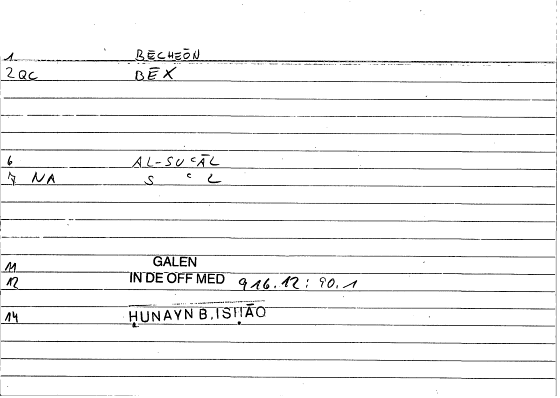 1 BĒCHEŌN
2 QC BĒX
6 AL-SUʿĀL
7 NA S ʿ L
11 GALEN
12 IN DE OFF MED 916.12 : 90.1
14 ḤUNAYN B. ISḤĀQ